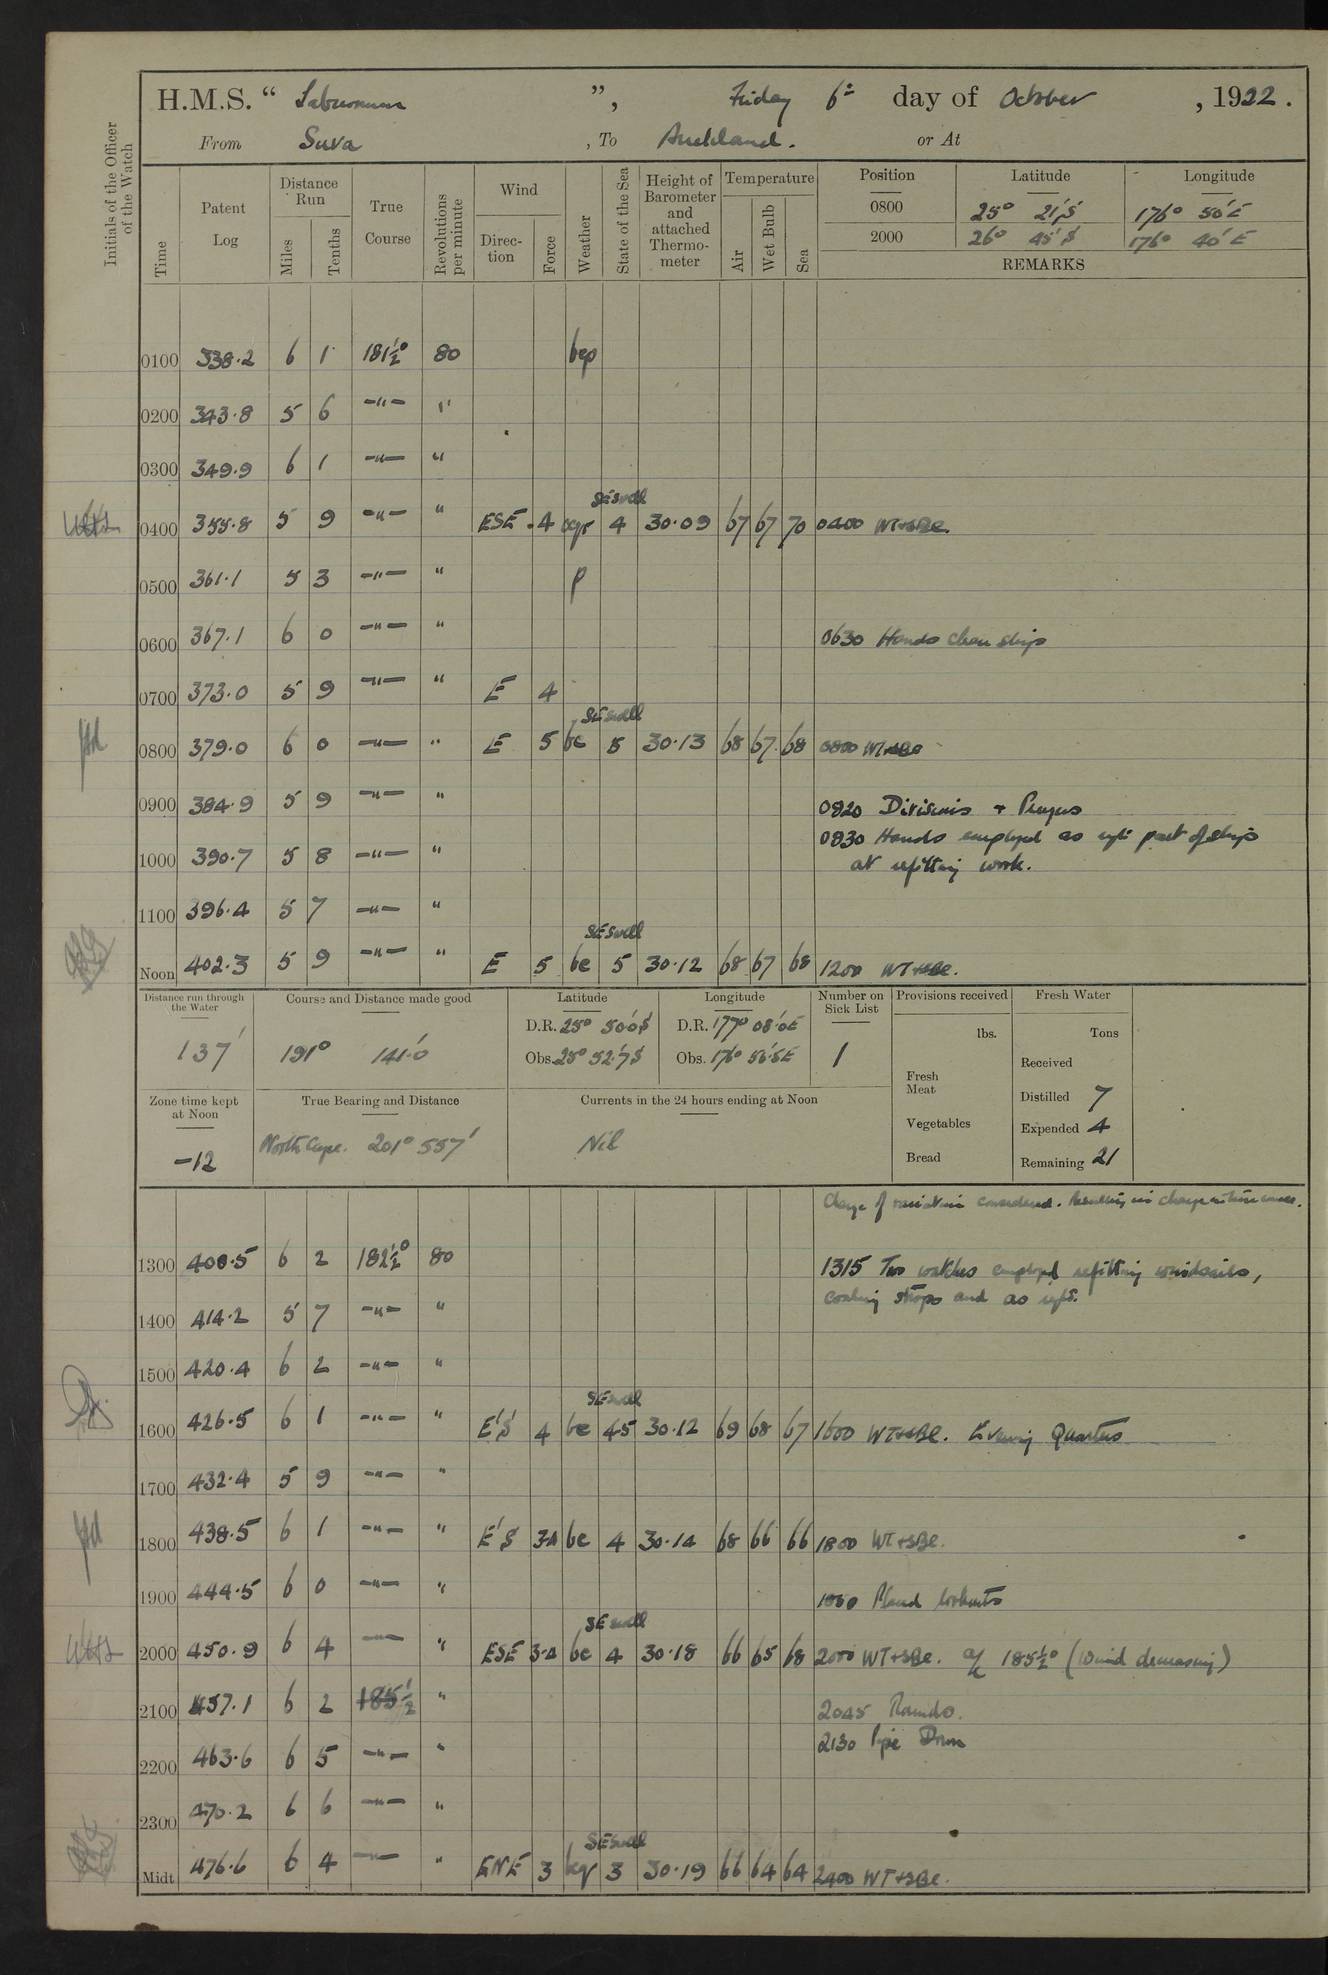 H.M.S. “ Laburnum ”, Friday 6th day of October , 1922.
From Suva , To Auckland. or At
Initials of the Officer of the Watch
Time
Patent Log
Distance Run
Miles
Tenths
True Course
Revolutions per minute
Wind
Direction
Force
Weather
State of the Sea
Height of Barometer and attached Thermometer
Temperature
Air
Wet Bulb
Sea
Position Latitude Longitude
0800 25° 21'S 176° 50'E
2000 26° 45'S 176° 40'E
REMARKS
0100 338.2 6 1 181½° 80 bcp
0200 343.8 5 6 —"— "
0300 349.9 6 1 —"— "
SE swell
0400 355.8 5 9 —"— " ESE 4 4 30.09 67 67 70 0400 WT+SBe.
0500 361.1 5 3 —"— " p
0600 367.1 6 0 —"— " 0630 Hands clean ship
0700 373.0 5 9 —"— " E 4
SE swell
0800 379.0 6 0 —"— " E 5 bc 5 30.13 68 67 68 0800 WT+SBe
0900 384.9 5 9 —"— " 0820 Divisions + Prayers
0830 Hands employed as reqte part of ships
1000 390.7 5 8 —"— " at refitting work.
1100 396.4 5 7 —"— "
SE swell
Noon 402.3 5 9 —"— " E 5 bc 5 30.12 68 67 68 1200 WT+SBe.
Distance run through the Water
137'
Course and Distance made good
191° 141'.0
Latitude
D.R. 25° 50'.0S
Obs. 25° 52'.7S
Longitude
D.R. 177° 08'.0E
Obs. 176° 56'.5E
Number on Sick List
1
Provisions received
lbs.
Fresh Meat
Vegetables
Bread
Fresh Water
Tons
Received
Distilled 7
Expended 4
Remaining 21
Zone time kept at Noon
-12
True Bearing and Distance
North Cape. 201° 557'
Currents in the 24 hours ending at Noon
Nil
Change of variation considered. Resulting in change in true course.
1300 408.5 6 2 182½° 80 1315 Two watches employed refitting windsails,
coaling strops and as reqte.
1400 414.2 5 7 —"— "
1500 420.4 6 2 —"— "
SE swell
1600 426.5 6 1 —"— " E'S 4 bc 45 30.12 69 68 67 1600 WT+SBe. Evening Quarters
1700 432.4 5 9 —"— "
1800 438.5 6 1 —"— " E'S 3-4 bc 4 30.14 68 66 66 1800 WT+SBe.
1900 444.5 6 0 —"— " Placed lookouts
SE swell
2000 450.9 6 4 —"— " ESE 3-4 bc 4 30.18 66 65 68 2000 WT+SBe. a/c 185½° (Wind decreasing)
2100 457.1 6 2 185½ " 2045 Rounds.
2130 Pipe Down
2200 463.6 6 5 —"— "
2300 470.2 6 6 —"— "
SE swell
Midt 476.6 6 4 —"— " ENE 3 3 30.19 66 64 64 2400 WT+SBe.